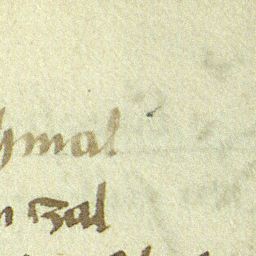 hmal
n zal